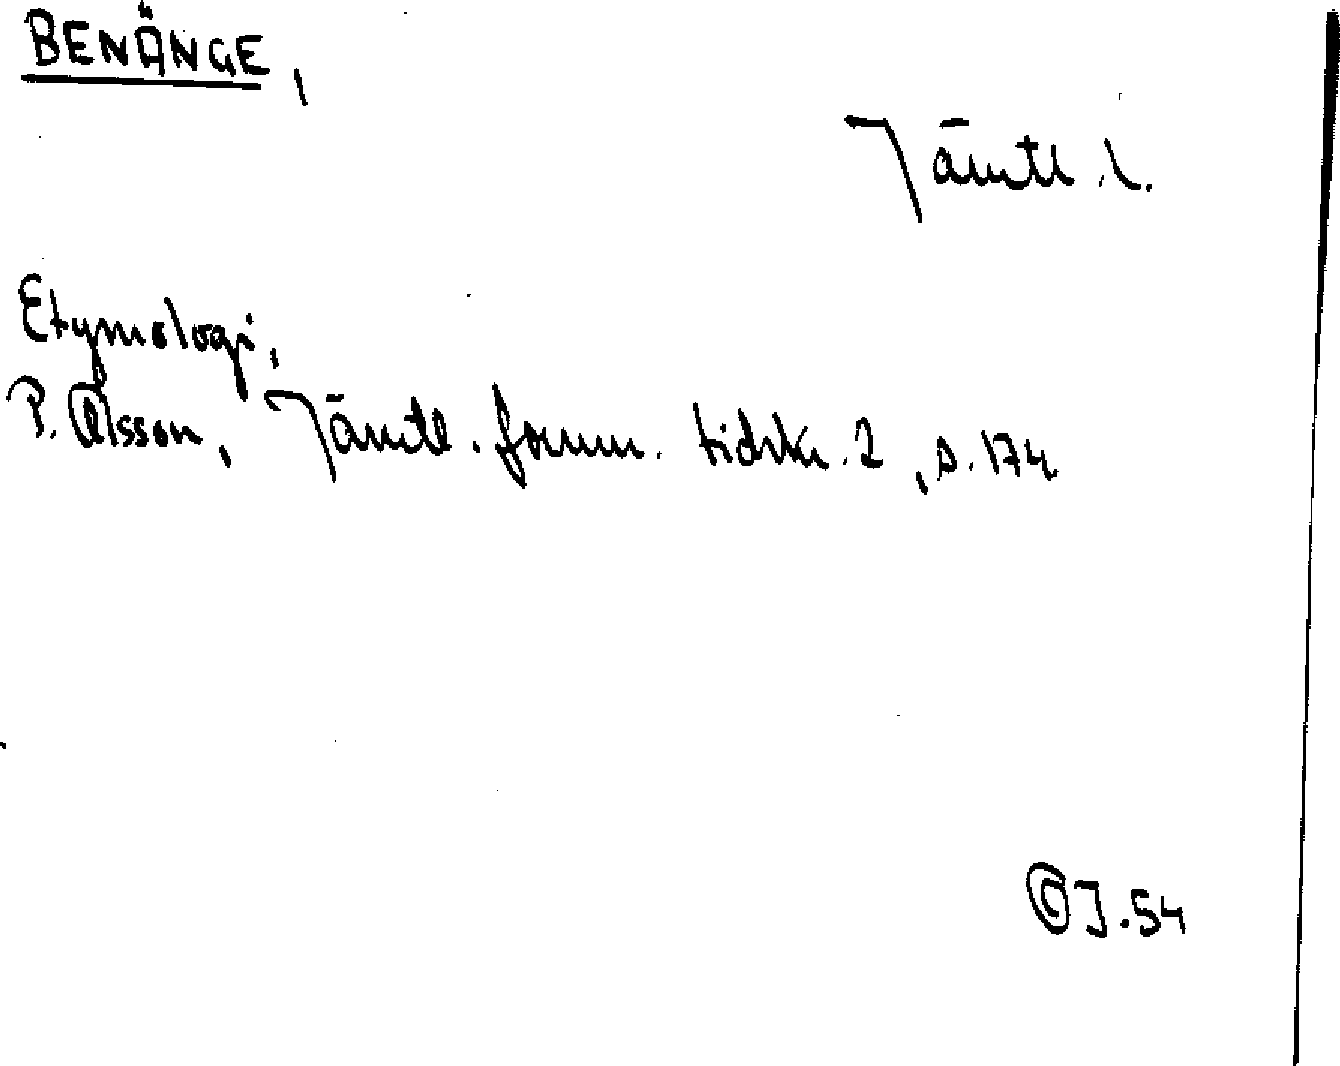 BENÄNGE,
Jämtl. l.
Etymologi,
P. Olsson, Jämtl. fornm. tidskr. 2, s. 174
OJ. 54